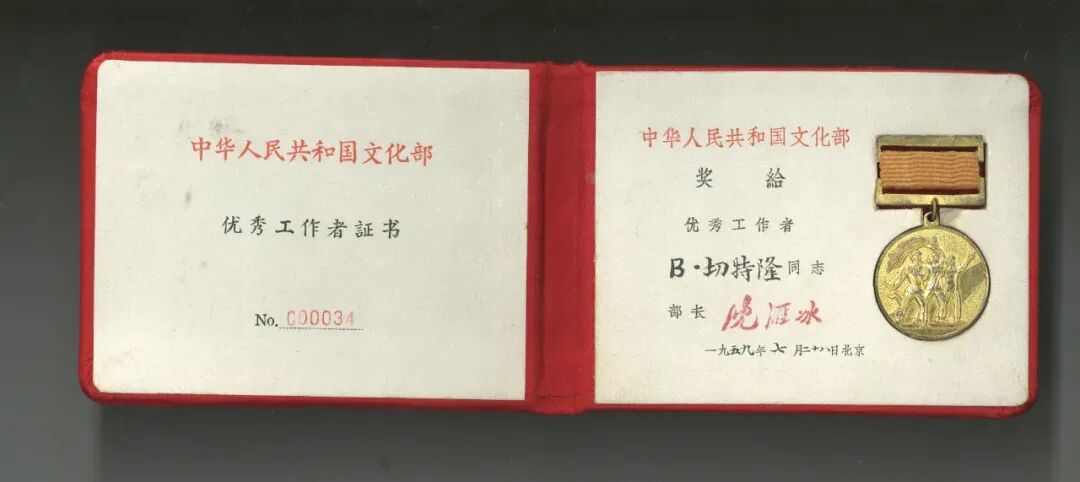 中华人民共和国文化部
优秀工作者証书
No. 000034
中华人民共和国文化部
奖給
优秀工作者
B·切特隆同志
部长 沈雁冰
一九五九年七月二十八日北京